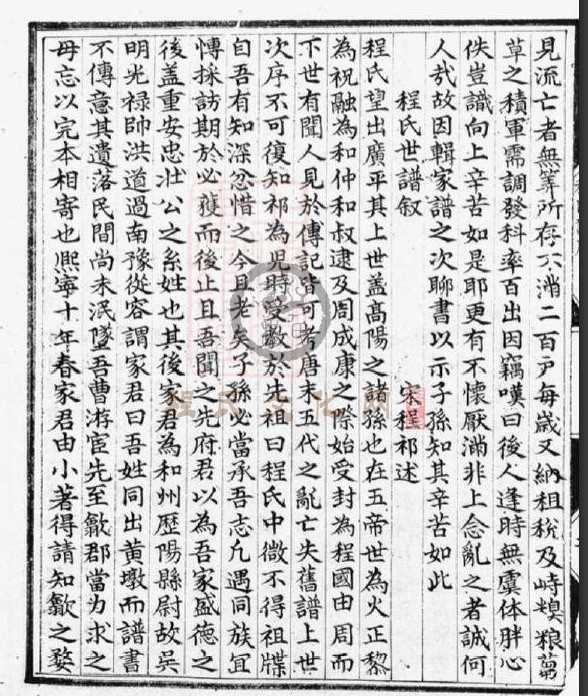 見流亡者無筭所存不滿二百戶每歲又納租稅及峙糗粮蒭
草之積軍需調發科率百出因竊嘆曰後人逢時無虞体胖心
佚豈識向上辛苦如是耶更有不懷厭滿非上念亂之者誠何
人㢤故因輯家譜之次聊書以示子孫知其辛苦如此
程氏世譜叙
宋程祁述
程氏望出廣平其上世盖髙陽之諸孫也在五帝世為火正黎
為祝融為和仲和叔逮及周成康之際始受封為程國由周而
下世有聞人見於傳記皆可考唐末五代之亂亡失舊譜上世
次序不可復知祁為児時受教於先祖曰程氏中微不得祖牒
自吾有知深忿惜之今且老矣子孫必當承吾志凢遇同族宜
慱採訪期於必獲而後止且吾聞之先府君以為吾家盛德之
後盖重安忠壮公之系姓也其後家君為和州歷陽縣尉故吳
明光禄帥洪道過南豫從容謂家君曰吾姓同出黄墩而譜書
不傳意其遺落民間尚未泯墜吾曹游宦先至歙郡當力求之
毋忘以完本相寄也熈寧十年春家君由小著得請知歙之婺
程氏文化网